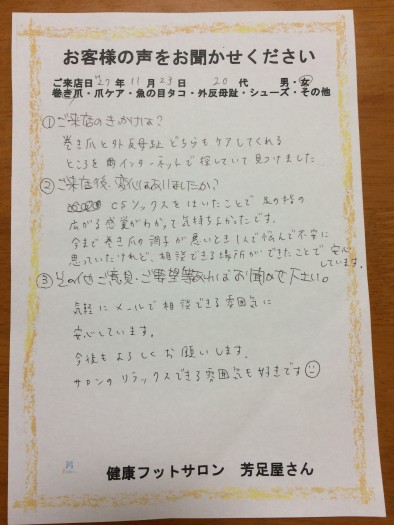 お客様の声をお聞かせください
ご来店日 '27 年 11 月 23 日 20 代 男・女
巻き爪・爪ケア・魚の目タコ・外反母趾・シューズ・その他
①ご来店のきっかけは?
巻き爪と外反母趾どちらもケアしてくれる
ところを インターネットで探していて見つけました
②ご来店後、変化はありましたか?
CSソックスをはいたことで 足の指の
広がる感覚がわかって気持ちよかったです。
今まで巻き爪の調子が悪いとき1人で悩んで不安に
思っていたけれど、相談できる場所ができたことで安心
しています。
③その他ご意見・ご要望等あればお聞かせ下さい。
気軽にメールで相談できる雰囲気に
安心しています。
今後もよろしくお願いします。
サロンのリラックスできる雰囲気も好きです
健康フットサロン 芳足屋さん